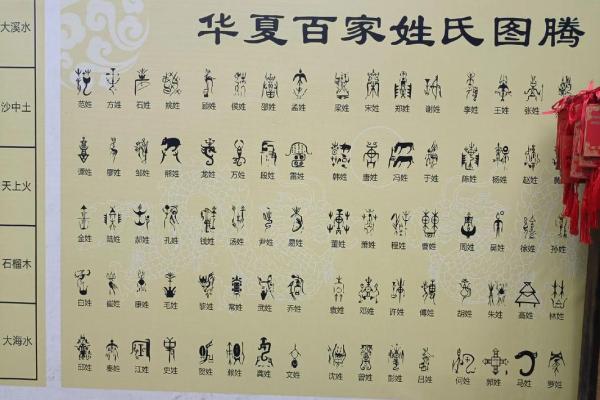 华夏百家姓氏图腾
大溪水
沙中土
天上火
石榴木
大海水
范姓 方姓 石姓 姚姓 顾姓 侯姓 邵姓 孟姓 梁姓 宋姓 郑姓 谢姓 李姓 王姓 张姓
谭姓 廖姓 邹姓 熊姓 龙姓 万姓 段姓 雷姓 韩姓 唐姓 冯姓 于姓 陈姓 杨姓 赵姓
金姓 陆姓 郝姓 孔姓 钱姓 汤姓 尹姓 易姓 董姓 萧姓 程姓 曹姓 周姓 吴姓 徐姓 孙姓
白姓 崔姓 康姓 毛姓 黎姓 常姓 武姓 乔姓 袁姓 邓姓 许姓 傅姓 胡姓 朱姓 高姓 林姓
邱姓 秦姓 江姓 史姓 贺姓 赖姓 龚姓 文姓 沈姓 曾姓 彭姓 吕姓 何姓 郭姓 马姓 罗姓